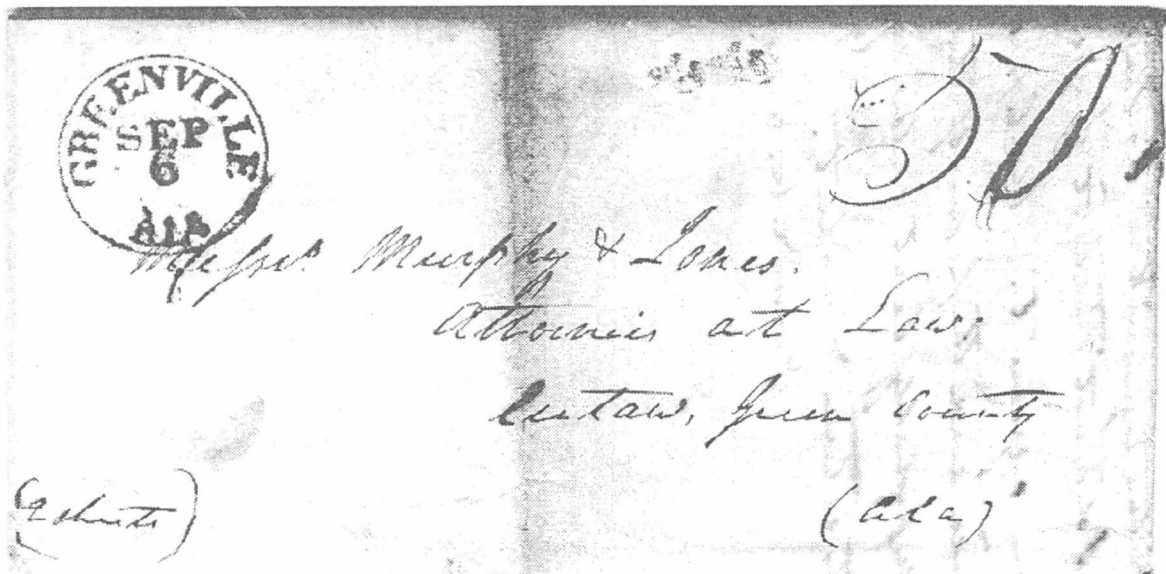 GREENVILLE
SEP
6
Ala
50
Messrs Murphy & Jones.
Attornies at Law.
Eutaw, Green County
(2 sheets)
(Ala)